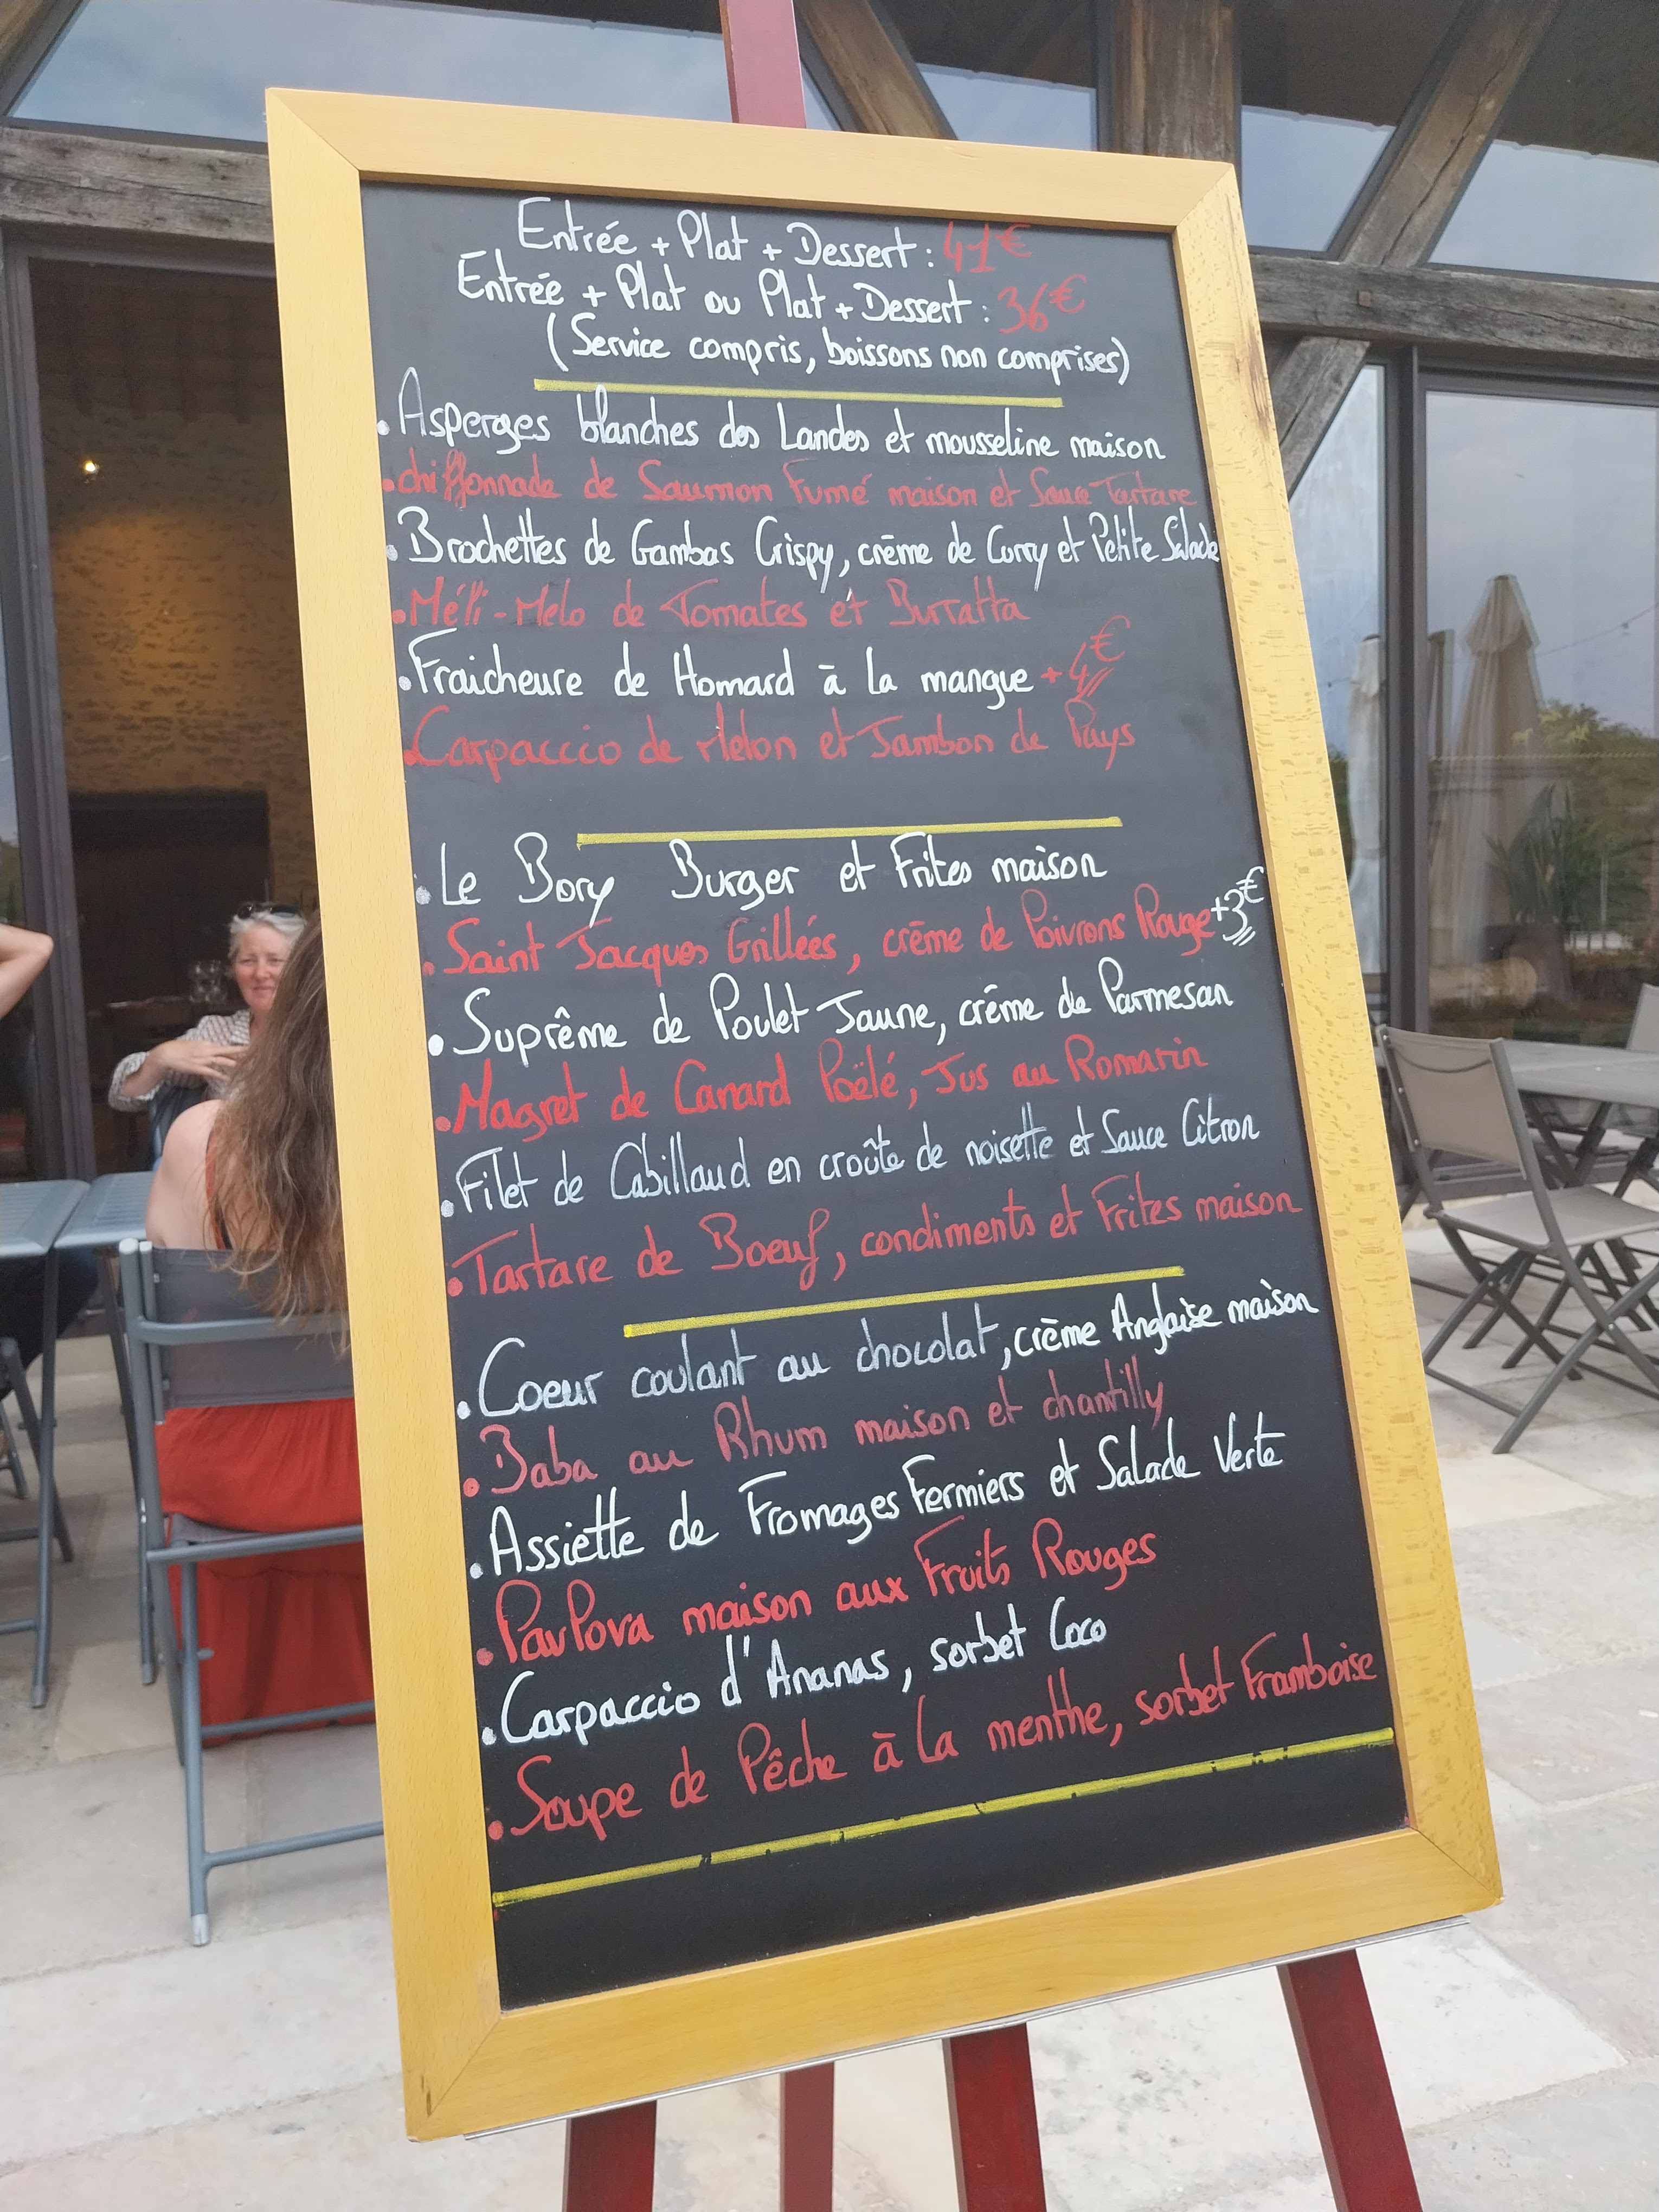 Entrée + Plat + Dessert : 41€
Entrée + Plat ou Plat + Dessert : 36€
(Service compris, boissons non comprises)
. Asperges blanches des Landes et mousseline maison
. chiffonnade de Saumon Fumé maison et Sauce Tartare
. Brochettes de Gambas Crispy, crème de Curry et Petite Salade
. Méli-Melo de Tomates et Burratta
. Fraicheure de Homard à la mangue + 4€
. Carpaccio de Melon et Jambon de Pays
. Le Bory Burger et Frites maison
. Saint Jacques Grillées, crème de Poivrons Rouge +3€
. Suprême de Poulet Jaune, crème de Parmesan
. Magret de Canard Poëlé, Jus au Romarin
. Filet de Cabillaud en croûte de noisette et Sauce Citron
. Tartare de Boeuf, condiments et Frites maison
. Coeur coulant au chocolat, crème Anglaise maison
. Baba au Rhum maison et chantilly
. Assiette de Fromages Fermiers et Salade Verte
. Pavlova maison aux Fruits Rouges
. Carpaccio d'Ananas, sorbet Coco
. Soupe de Pêche à la menthe, sorbet Framboise